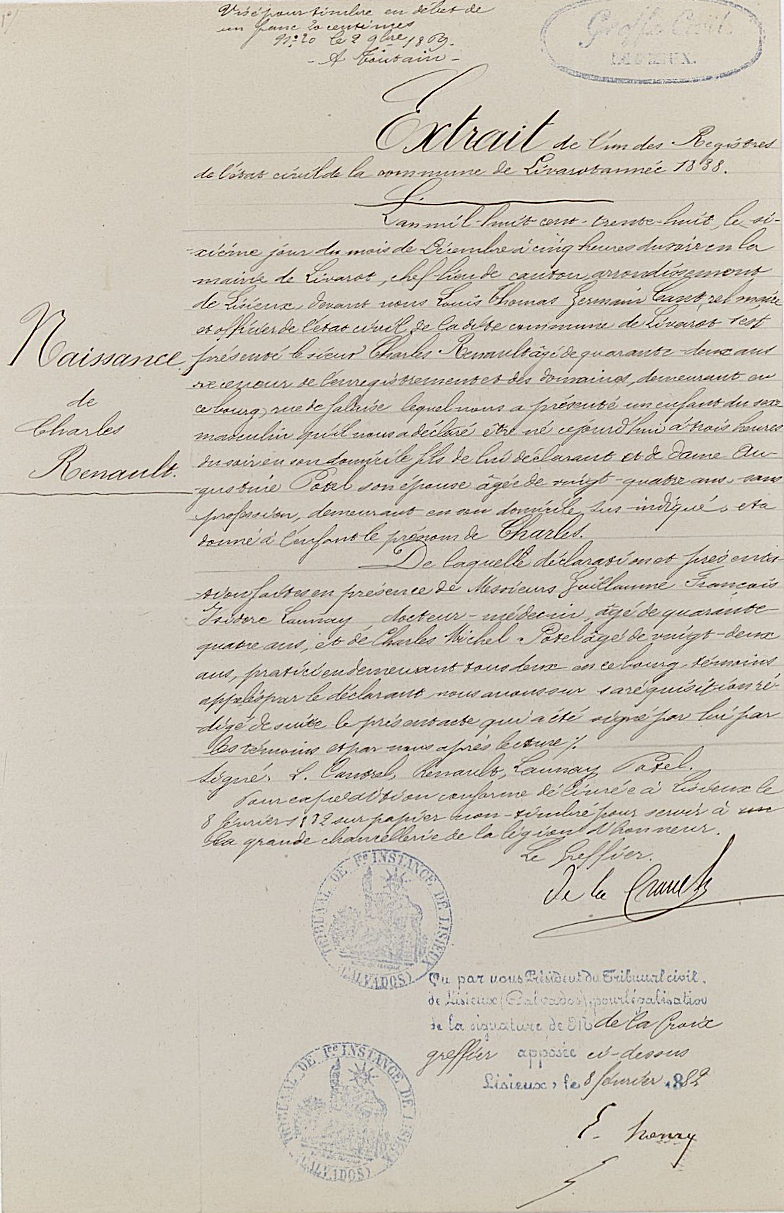 Visé pour timbre en débet de
un franc 20 centimes
N° 20 le 2 9bre 1869.
- A Toutain -
Greffe Civil
LISIEUX.
Extrait de l'un des Registres
de l'état civil de la commune de Livarot année 1838.
L'an mil-huit cent-trente-huit, le si-
xième jour du mois de Décembre à cinq heures du soir en la
mairie de Livarot, chef lieu de canton, arrondissement
de Lisieux, devant nous Louis Thomas Germain Cantrel maire
et officier de l'état civil de ladite commune de Livarot s'est
présenté le sieur Charles Renault âgé de quarante-deux ans
receveur de l'enregistrement et des domaines, demeurant en
ce bourg, rue de falaise lequel nous a présenté un enfant du sexe
masculin qu'il nous a déclaré être né cejourd'hui à trois heures
du soir en son domicile fils de lui déclarant et de dame Au-
gustine Potel son épouse âgée de vingt-quatre ans, sans
profession, demeurant en son domicile sus-indiqué, et a
donné à l'enfant le prénom de Charles.
Naissance
de
Charles
Renault.
De laquelle déclaration et présenta-
tion faites en présence de Messieurs Guillaume François
Isidore Launay docteur-médecin, âgé de quarante
quatre ans, et de Charles Michel Potel âgé de vingt-deux
ans, praticien demeurant tous deux en ce bourg, témoins
appelés par le déclarant nous avons sur sa réquisition ré-
digé de suite le présent acte qui a été signé par lui par
les témoins et par nous après lecture %.
Signé: L. Cantrel, Renault, Launay, Potel.
Pour expédition conforme délivrée à Lisieux le
8 février 1882 sur papier non-timbré pour servir à
la grande chancellerie de la légion d'honneur.
Le Greffier.
de la Croix
TRIBUNAL DE 1re INSTANCE DE LISIEUX
(CALVADOS)
Vu par nous Président du Tribunal civil.
de Lisieux (Calvados), pour légalisation
de la signature de M de la Croix
greffier apposée ci-dessus
Lisieux, le 8 février 1882
E. henry
TRIBUNAL DE 1re INSTANCE DE LISIEUX
(CALVADOS)